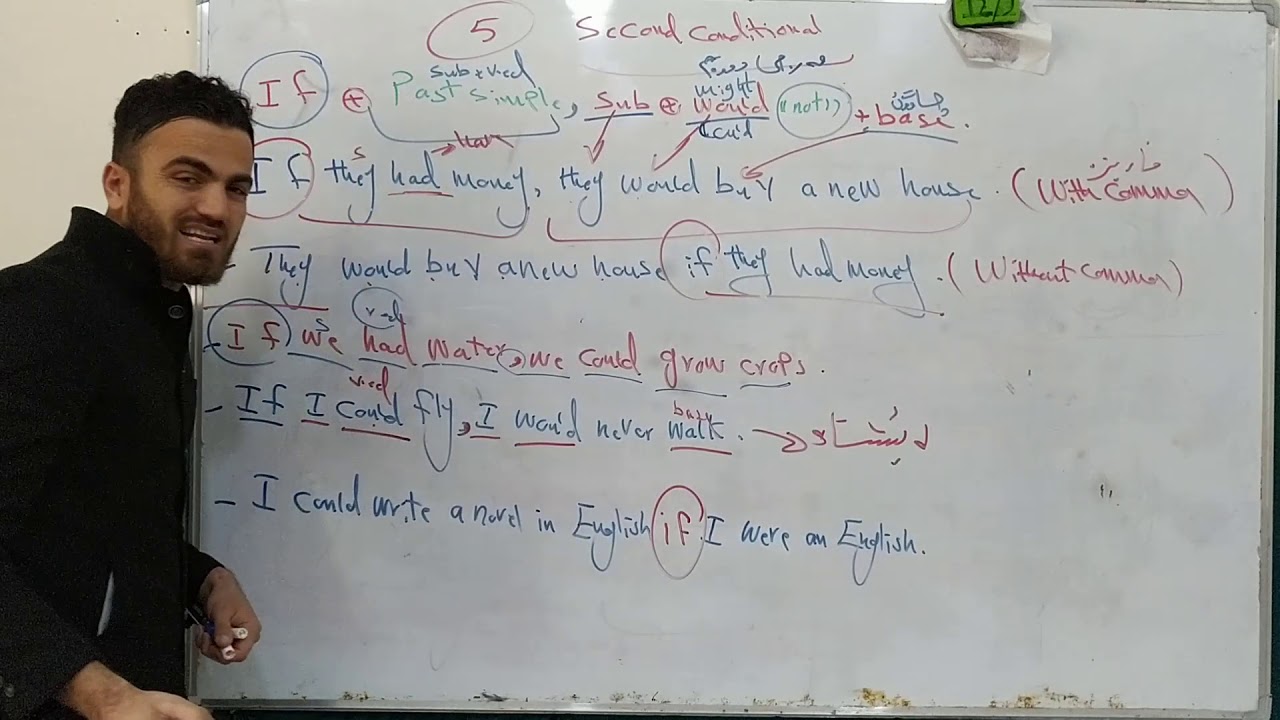 5 Second Conditional
sub + v.ed might
If + Past simple, sub + would (not) + base.
could
If they had money, they would buy a new house. (With Comma)
- They would buy a new house if they had money. (Without Comma)
- If we had water, we could grow crops.
v.ed base
- If I could fly, I would never walk.
- I could write a novel in English if I were an English.